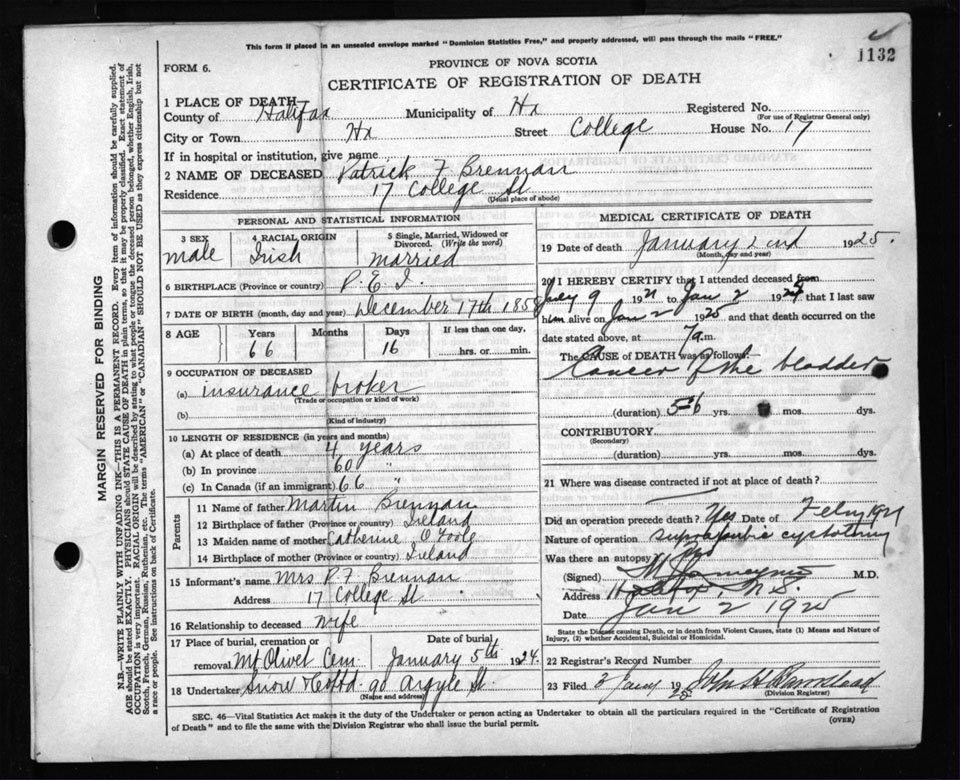 This form if placed in an unsealed envelope marked "Dominion Statistics Free," and properly addressed, will pass through the mails "FREE."
1132
FORM 6.
PROVINCE OF NOVA SCOTIA
CERTIFICATE OF REGISTRATION OF DEATH
1 PLACE OF DEATH
County of Halifax Municipality of Hx Registered No.
(For use of Registrar General only)
City or Town Hx Street College House No. 17
If in hospital or institution, give name
2 NAME OF DECEASED Patrick F Brennan
Residence 17 College St
(Usual place of abode)
PERSONAL AND STATISTICAL INFORMATION
3 SEX 4 RACIAL ORIGIN 5 Single, Married, Widowed or Divorced. (Write the word)
male Irish married
6 BIRTHPLACE (Province or country) P. E. I.
7 DATE OF BIRTH (month, day and year) December 17th 1858
8 AGE Years Months Days If less than one day,
66 16 hrs. or min.
9 OCCUPATION OF DECEASED
(a) insurance broker
(Trade or occupation or kind of work)
(b)
(Kind of industry)
10 LENGTH OF RESIDENCE (in years and months)
(a) At place of death 4 years
(b) In province 60 "
(c) In Canada (if an immigrant) 66 "
Parents
11 Name of father Martin Brennan
12 Birthplace of father (Province or country) Ireland
13 Maiden name of mother Catherine O Toole
14 Birthplace of mother (Province or country) Ireland
15 Informant's name Mrs. P. F Brennan
Address 17 College St
16 Relationship to deceased wife
17 Place of burial, cremation or Date of burial
removal Mt Olivet Cem. January 5th 1924.
18 Undertaker Snow & Co Ltd 90 Argyle St.
(Name and address)
MEDICAL CERTIFICATE OF DEATH
19 Date of death January 2nd 1925.
(Month, day and year)
20 I HEREBY CERTIFY that I attended deceased from
July 9 1921 to Jan 2 1925 that I last saw
him alive on Jan 2 1925 and that death occurred on the
date stated above, at 7 a.m.
The CAUSE of DEATH was as follows:
Cancer of the bladder
(duration) 5-6 yrs. mos. dys.
CONTRIBUTORY
(Secondary)
(duration) yrs. mos. dys.
21 Where was disease contracted if not at place of death?
Did an operation precede death? Yes Date of Feby 1921
Nature of operation suprapubic cystotomy
Was there an autopsy? No
(Signed) M.D.
Address Halifax, N.S.
Date Jan 2 1925
State the Disease causing Death, or in death from Violent Causes, state (1) Means and Nature of
Injury, (2) whether Accidental, Suicidal or Homicidal.
22 Registrar's Record Number
23 Filed 3 Jany 1925 John H Barnstead
(Division Registrar)
SEC. 46—Vital Statistics Act makes it the duty of the Undertaker or person acting as Undertaker to obtain all the particulars required in the "Certificate of Registration
of Death" and to file the same with the Division Registrar who shall issue the burial permit.
(OVER)
MARGIN RESERVED FOR BINDING
N.B.—WRITE PLAINLY WITH UNFADING INK—THIS IS A PERMANENT RECORD. Every item of information should be carefully supplied.
AGE should be stated EXACTLY. PHYSICIANS should STATE CAUSE OF DEATH in plain terms, so that it may be properly classified. Exact statement of
OCCUPATION is very important. RACIAL ORIGIN will be described by stating to what people or tongue the deceased person belonged, whether English, Irish,
Scotch, French, German, Russian, Ruthenian, etc. The terms "AMERICAN" or "CANADIAN" SHOULD NOT BE USED as they express citizenship but not
a race or people. See instructions on back of Certificate.